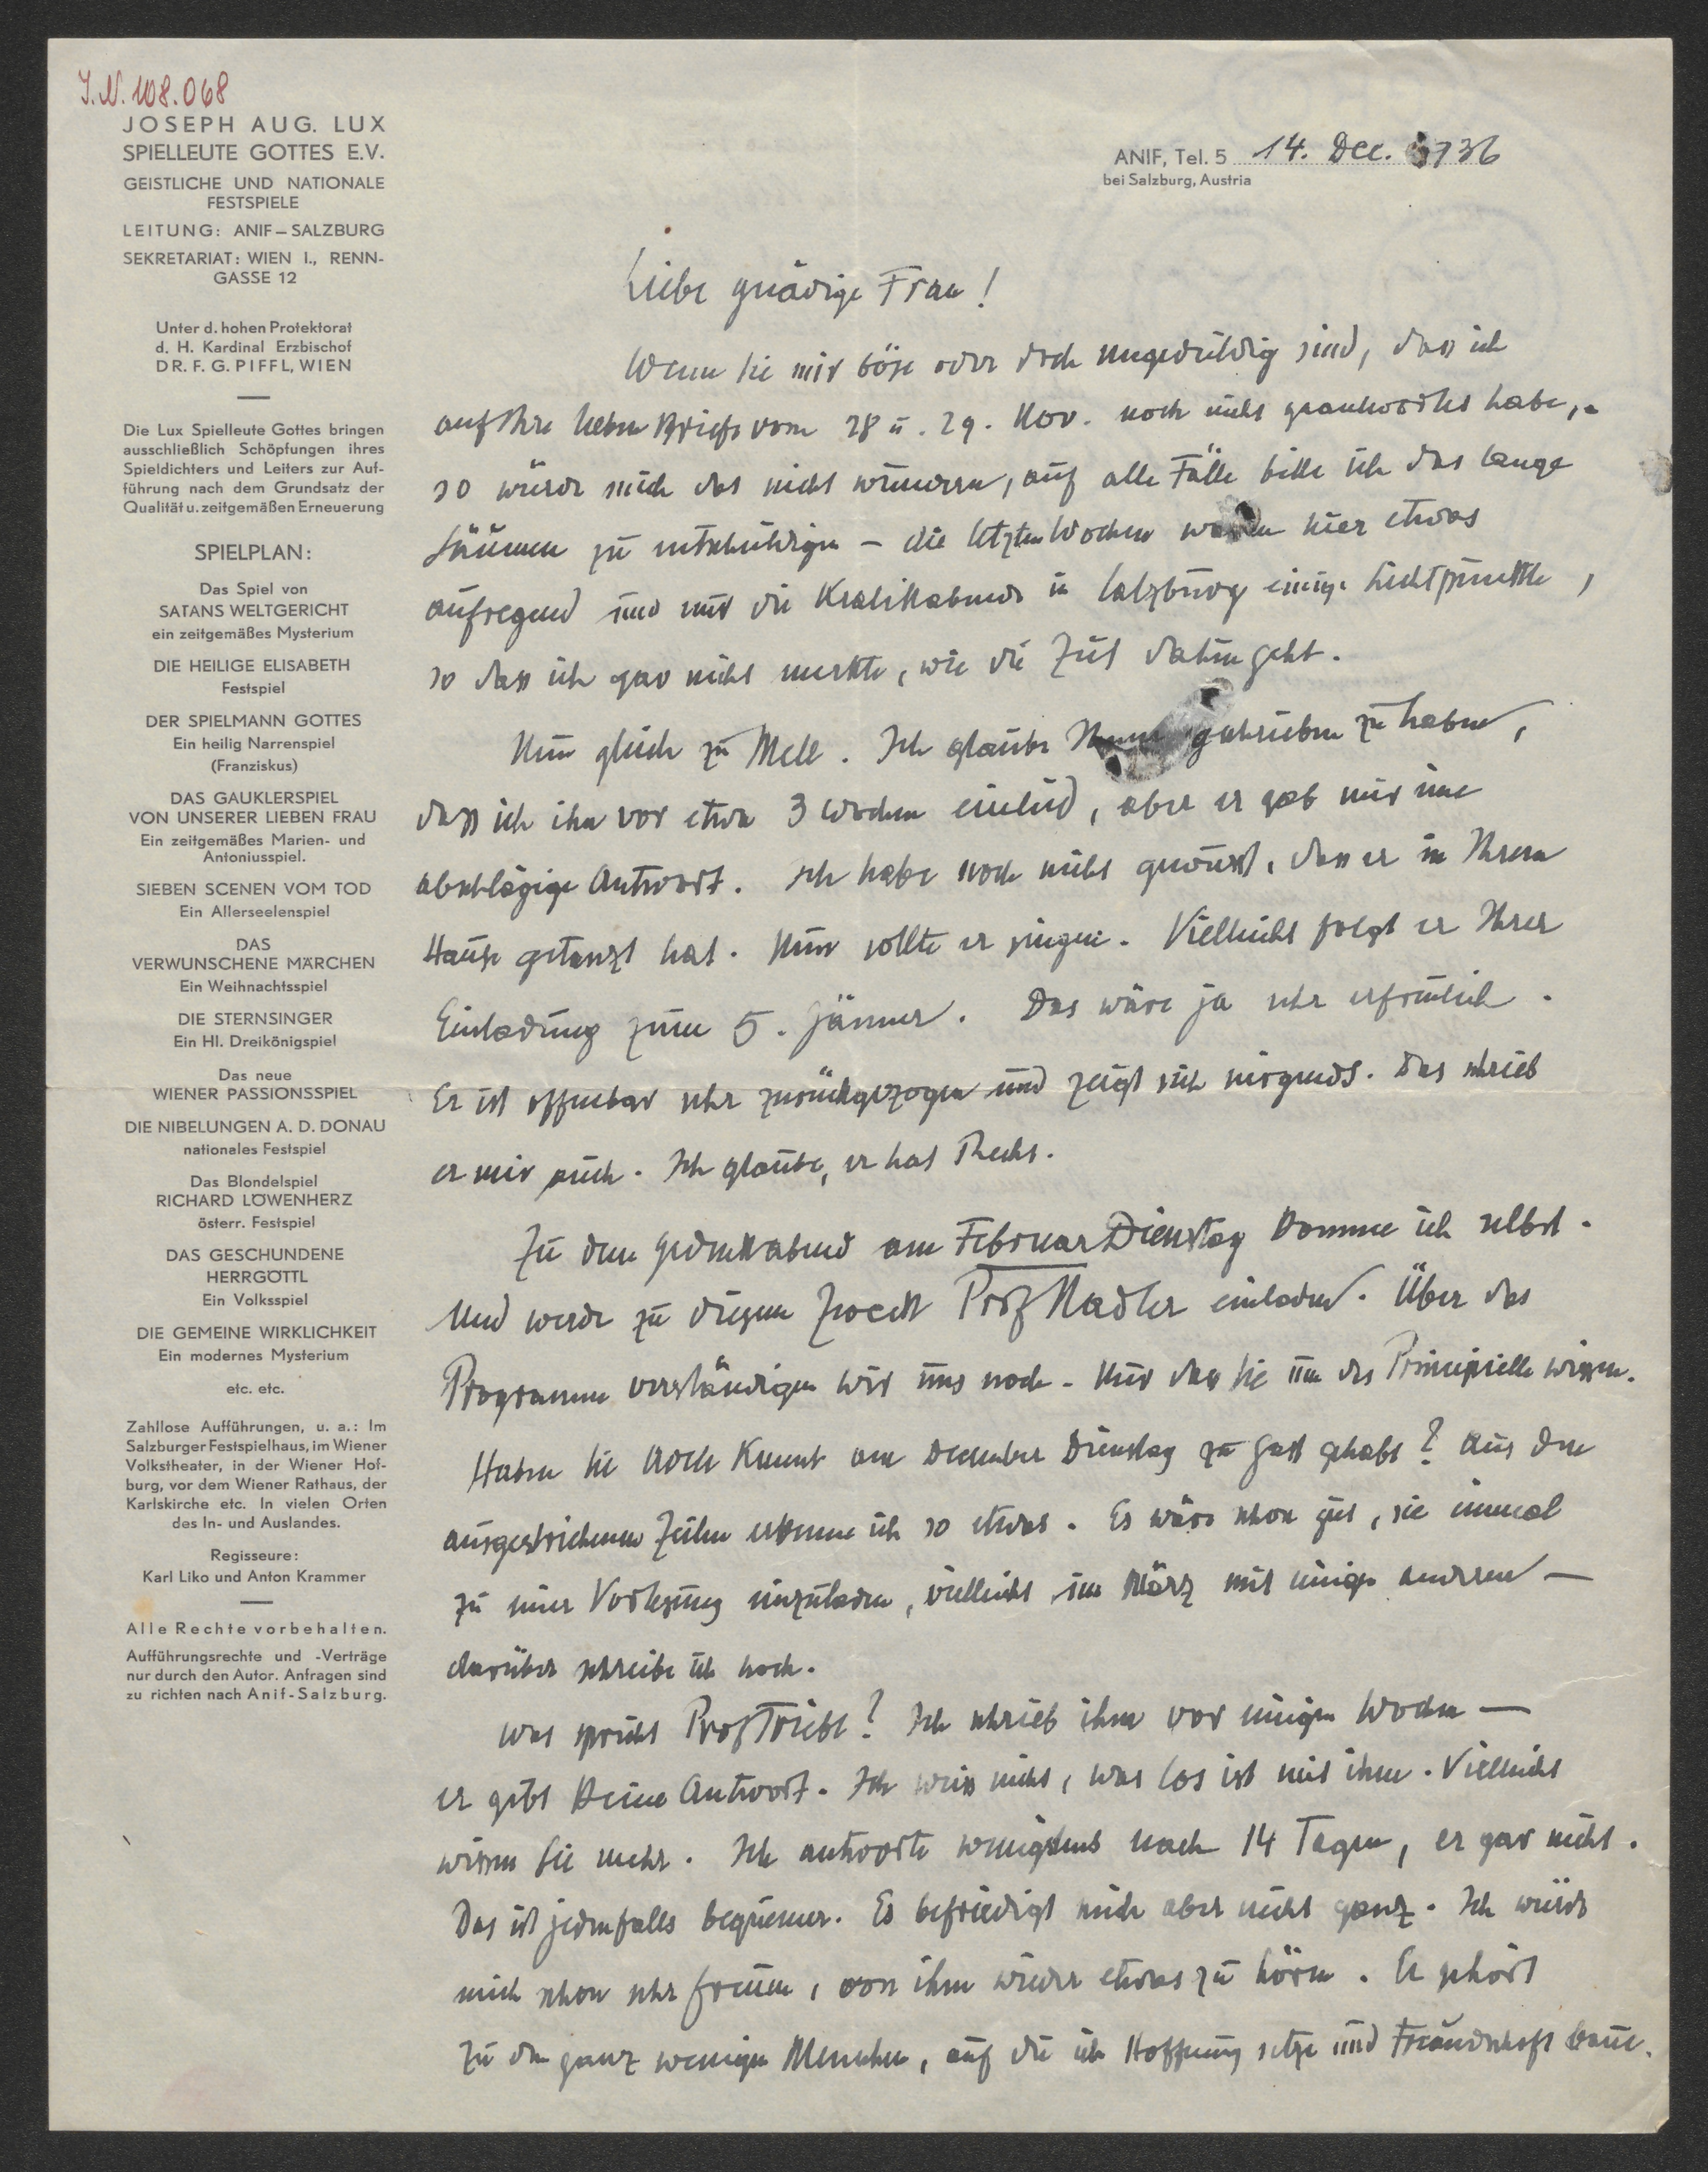 I.N. 108.068
JOSEPH AUG. LUX
SPIELLEUTE GOTTES E.V.
GEISTLICHE UND NATIONALE
FESTSPIELE
LEITUNG: ANIF – SALZBURG
SEKRETARIAT: WIEN I., RENN-
GASSE 12
Unter d. hohen Protektorat
d. H. Kardinal Erzbischof
DR. F. G. PIFFL, WIEN
Die Lux Spielleute Gottes bringen
ausschließlich Schöpfungen ihres
Spieldichters und Leiters zur Auf-
führung nach dem Grundsatz der
Qualität u. zeitgemäßen Erneuerung
SPIELPLAN:
Das Spiel von
SATANS WELTGERICHT
ein zeitgemäßes Mysterium
DIE HEILIGE ELISABETH
Festspiel
DER SPIELMANN GOTTES
Ein heilig Narrenspiel
(Franziskus)
DAS GAUKLERSPIEL
VON UNSERER LIEBEN FRAU
Ein zeitgemäßes Marien- und
Antoniusspiel.
SIEBEN SCENEN VOM TOD
Ein Allerseelenspiel
DAS
VERWUNSCHENE MÄRCHEN
Ein Weihnachtsspiel
DIE STERNSINGER
Ein Hl. Dreikönigspiel
Das neue
WIENER PASSIONSSPIEL
DIE NIBELUNGEN A. D. DONAU
nationales Festspiel
Das Blondelspiel
RICHARD LÖWENHERZ
österr. Festspiel
DAS GESCHUNDENE
HERRGÖTTL
Ein Volksspiel
DIE GEMEINE WIRKLICHKEIT
Ein modernes Mysterium
etc. etc.
Zahllose Aufführungen, u. a.: Im
Salzburger Festspielhaus, im Wiener
Volkstheater, in der Wiener Hof-
burg, vor dem Wiener Rathaus, der
Karlskirche etc. In vielen Orten
des In- und Auslandes.
Regisseure:
Karl Liko und Anton Krammer
Alle Rechte vorbehalten.
Aufführungsrechte und -Verträge
nur durch den Autor. Anfragen sind
zu richten nach Anif-Salzburg.
ANIF, Tel. 5 14. Dec. 36
bei Salzburg, Austria
Liebe gnädige Frau!
Wenn Sie mir böse oder doch ungeduldig sind, dass ich
auf Ihre lieben Briefe vom 28 u. 29. Nov. noch nicht geantwortet habe,
so würde mich das nicht wundern, auf alle Fälle bitte ich das lange
Säumen zu entschuldigen – die letzten Wochen waren hier etwas
aufregend und nur die Kralikabende in Salzburg einige Lichtpunkte,
so dass ich gar nicht merkte, wie die Zeit dahin geht.
Nun gleich zu Mell. Ich glaube Ihnen geschrieben zu haben,
dass ich ihn vor etwa 3 Wochen einlud, aber er gab mir eine
abschlägige Antwort. Ich habe noch nicht gewusst, dass er in Ihrem
Hause getanzt hat. Nun sollte er singen. Vielleicht folgt er Ihrer
Einladung zum 5. Jänner. Das wäre ja sehr erfreulich.
Er ist offenbar sehr zurückgezogen und zeigt sich nirgends. Das schrieb
er mir auch. Ich glaube, er hat Recht.
Zu dem Gedenkabend am Februar Dienstag komme ich selbst.
Und werde zu diesem Zweck Prof Nadler einladen. Über das
Programm verständigen wir uns noch. Nur dass Sie um das Principielle wissen.
Haben Sie Kment am December Dienstag zu Gast gehabt? Aus den
ausgestrichenen Zeilen erkenne ich so etwas. Es wäre schon gut, sie einmal
zu einer Vorlesung einzuladen, vielleicht im März mit einigen anderen –
darüber schreibe ich noch.
Was spricht Prof Triebl? Ich schrieb ihm vor einigen Wochen –
er gibt keine Antwort. Ich weiss nicht, was los ist mit ihm. Vielleicht
wissen Sie mehr. Ich antworte wenigstens nach 14 Tagen, er gar nicht.
Das ist jedenfalls bequemer. Es befriedigt mich aber nicht ganz. Ich würde
mich schon sehr freuen, von ihm wieder etwas zu hören. Er gehört
zu den ganz wenigen Menschen, auf die ich Hoffnung setze und Freundschaft baue.